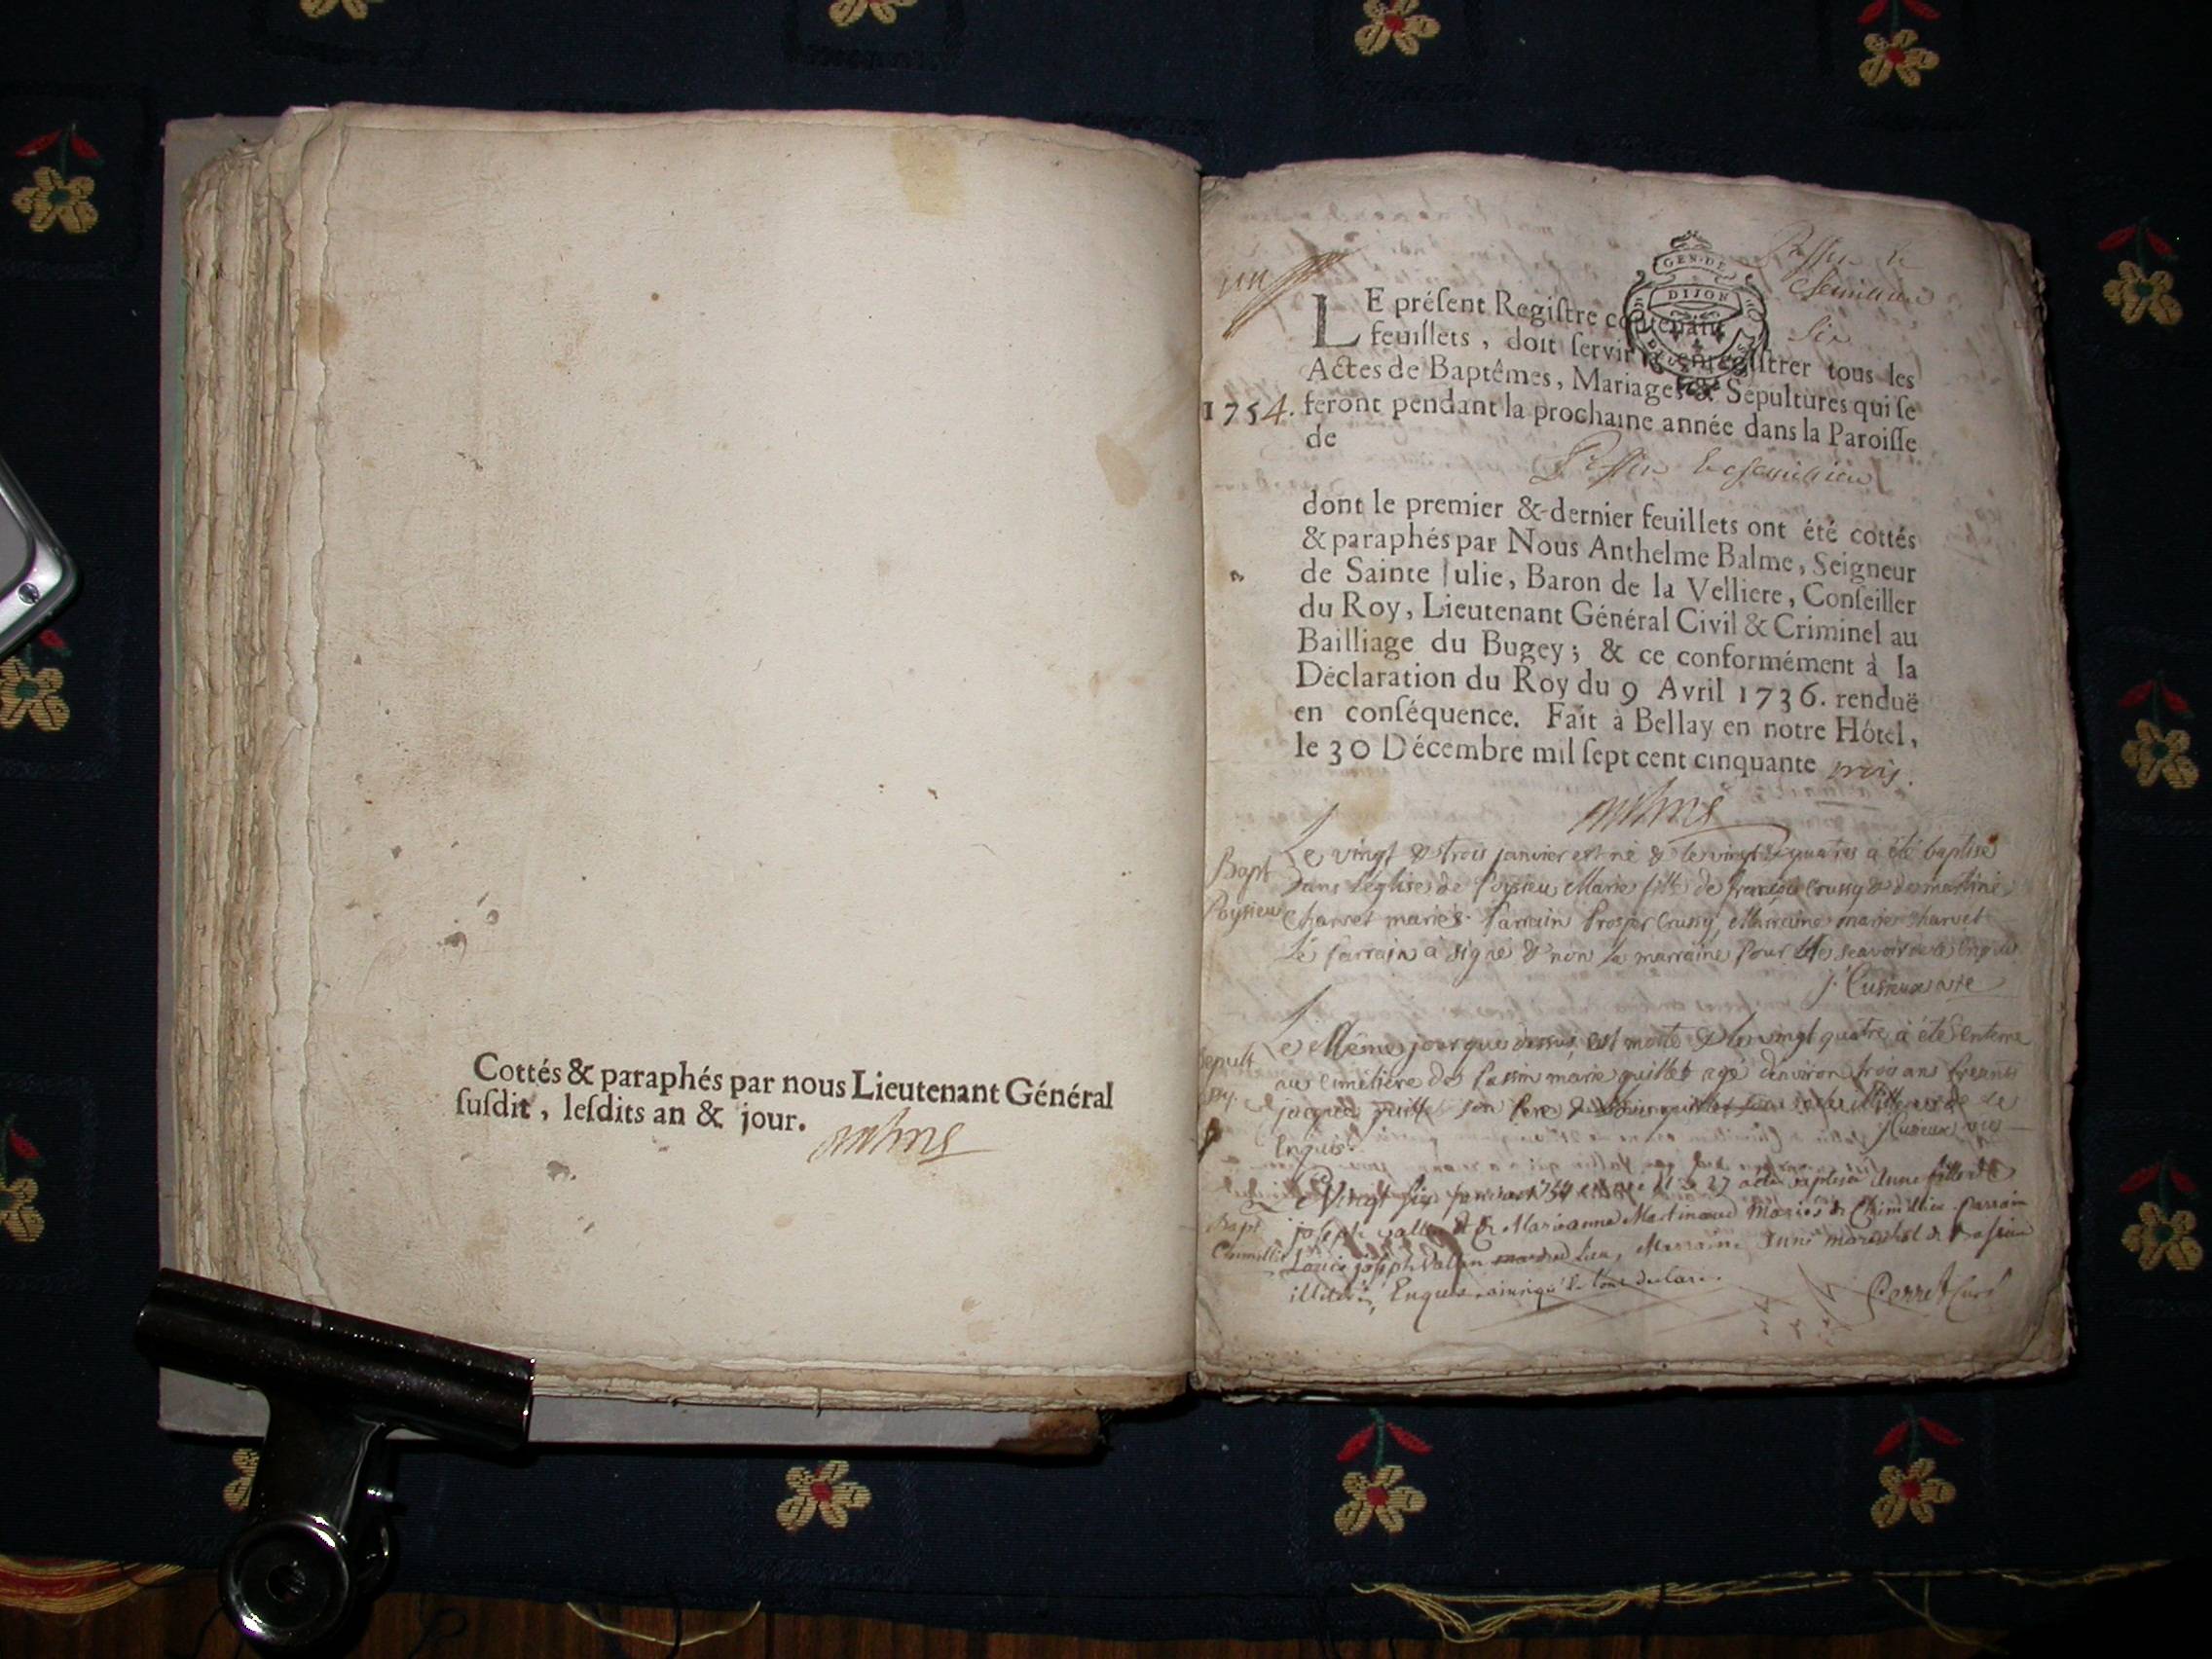 Cottés & paraphés par nous Lieutenant Général
ſuſdit, leſdits an & jour.
GEN·DE
DIJON
LE préſent Regiſtre contenant
feuillets, doit ſervir à enregiſtrer tous les
Actes de Baptêmes, Mariages & Sépultures qui ſe
1754. feront pendant la prochaine année dans la Paroiſſe
de
dont le premier & dernier feuillets ont été cottés
& paraphés par Nous Anthelme Balme, Seigneur
de Sainte Julie, Baron de la Velliere, Conſeiller
du Roy, Lieutenant Général Civil & Criminel au
Bailliage du Bugey; & ce conformément à la
Déclaration du Roy du 9 Avril 1736. renduë
en conſéquence. Fait à Bellay en notre Hôtel,
le 30 Décembre mil ſept cent cinquante trois.
Bapt Le vingt & trois janvier est né & le vingt & quatre a été baptisé
Poysieu dans l'église de Poysieu Marie fille de françois Crussy &
Charvet mariés. Parrain Prosper Crussy, Marraine marie Charvet
Le parrain a signé & non la marraine pour ne sçavoir de ce enquis
Sepult Le Même jour que dessus est morte & le vingt quatre a été enterré
au cimetière de Passin marie guillet agé d'environ trois ans presents
jacques guillet son pere &
Enquis.
Le Vingt six janvier 1754 & le 27 a été baptisée Anne fille de
Bapt joseph & de Marianne Martinand Mariés de Chimillieu. parrain
Chimillieu Louis joseph Vallin lieu, Marraine Anne marechal de Passin
illiterés, Enquis ainsi qu'ils l'ont declaré. Perret Curé